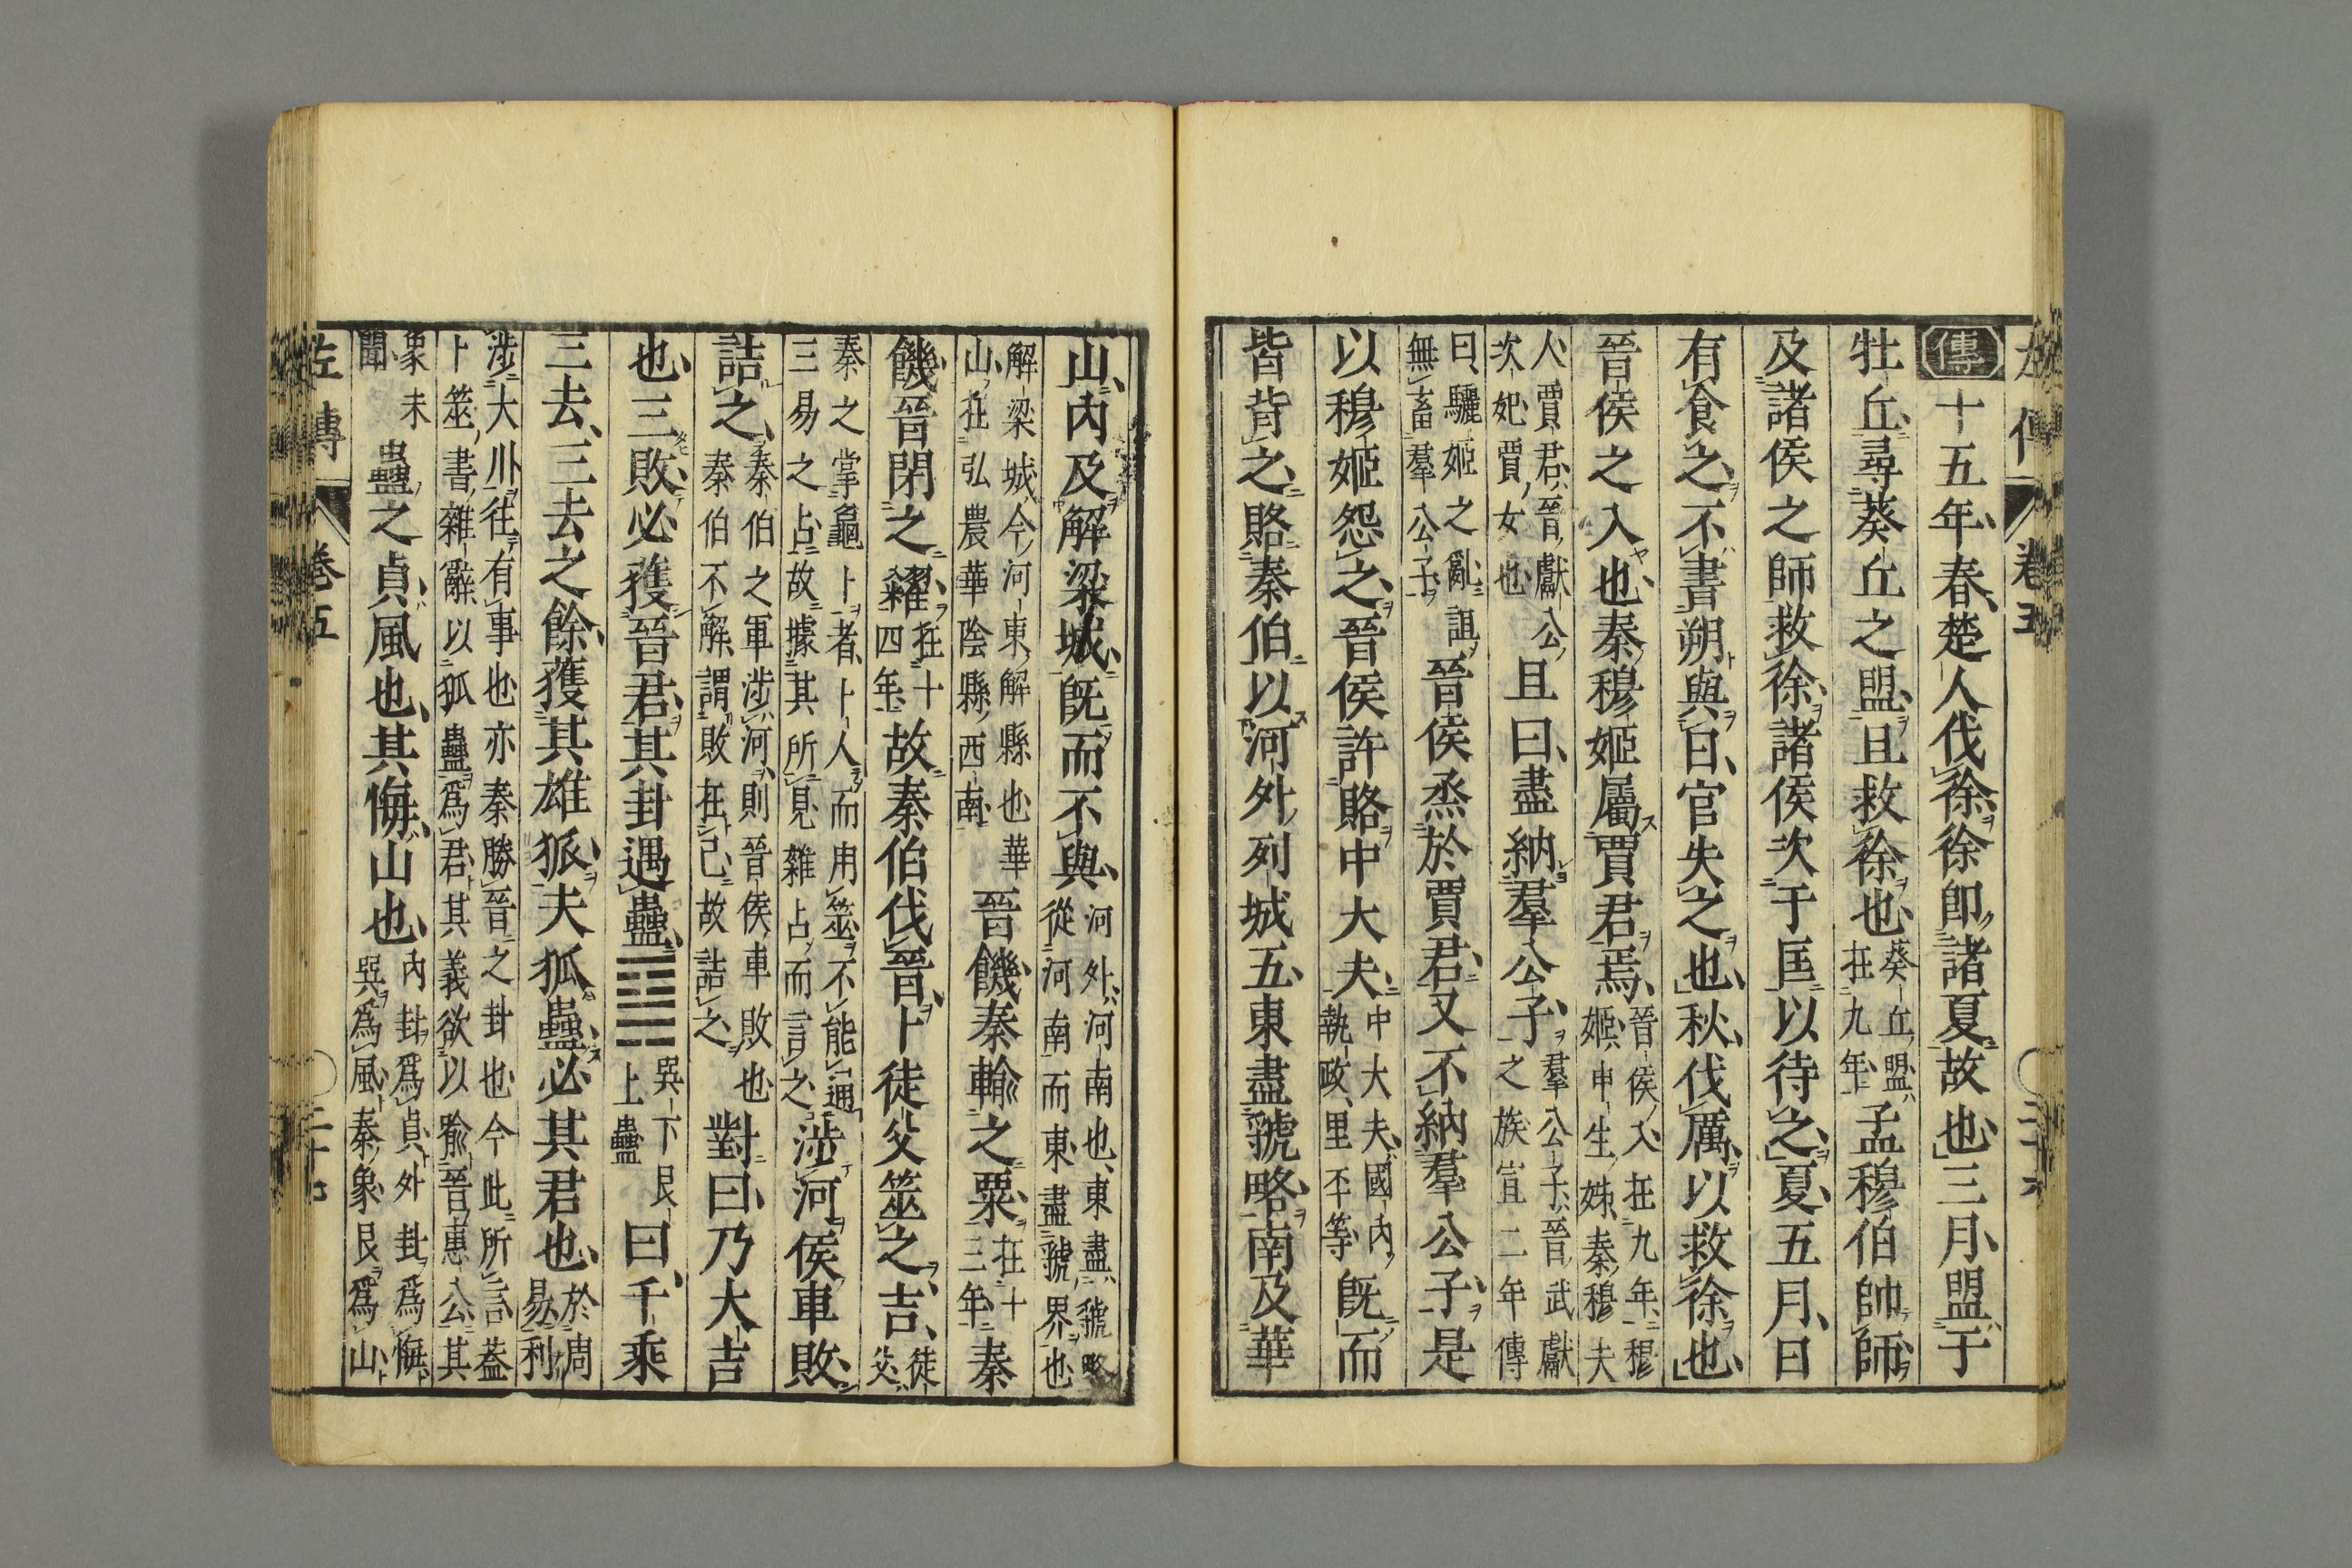 左傳 卷五 二十六
傳十五年春楚人伐徐徐卽諸夏故也三月盟于
牡丘尋葵丘之盟且救徐也葵丘盟在九年孟穆伯帥師
及諸侯之師救徐諸侯次于匡以待之夏五月日
有食之不書朔與日官失之也秋伐厲以救徐也
晉侯之入也秦穆姬屬賈君焉晉侯入在九年穆姬申生姊秦穆夫
人賈君晉獻公次妃賈女也且曰盡納羣公子羣公子晉武獻之族宣二年傳
曰驪姬之亂詛無畜羣公子晉侯烝於賈君又不納羣公子是
以穆姬怨之晉侯許賂中大夫中大夫國內執政里丕等旣而
皆背之賂秦伯以河外列城五東盡虢略南及華
山內及解梁城旣而不與河外河南也東盡虢略從河南而東盡虢界也
解梁城今河東解縣也華山在弘農華陰縣西南晉饑秦輸之粟在十三年秦
饑晉閉之糴在十四年故秦伯伐晉卜徒父筮之吉徒父
秦之掌龜卜者卜人而用筮不能通三易之占故據其所見雜占而言之涉河侯車敗
詰之秦伯之軍涉河則晉侯車敗也秦伯不解謂敗在己故詰之對曰乃大吉
也三敗必獲晉君其卦遇蠱䷑巽下艮上蠱曰千乘
三去三去之餘獲其雄狐夫狐蠱必其君也於周易利
涉大川往有事也亦秦勝晉之卦也今此所言蓋卜筮書雜辭以狐蠱爲君其義欲以喩晉惠公其
象未聞蠱之貞風也其悔山也內卦爲貞外卦爲悔巽爲風秦象艮爲山
左傳 卷五 二十七